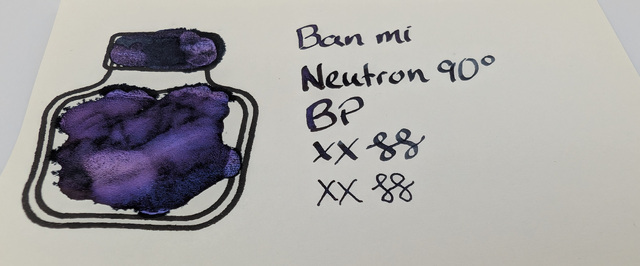 Ban mi
Neutron 90°
BP
xx 88
xx 88